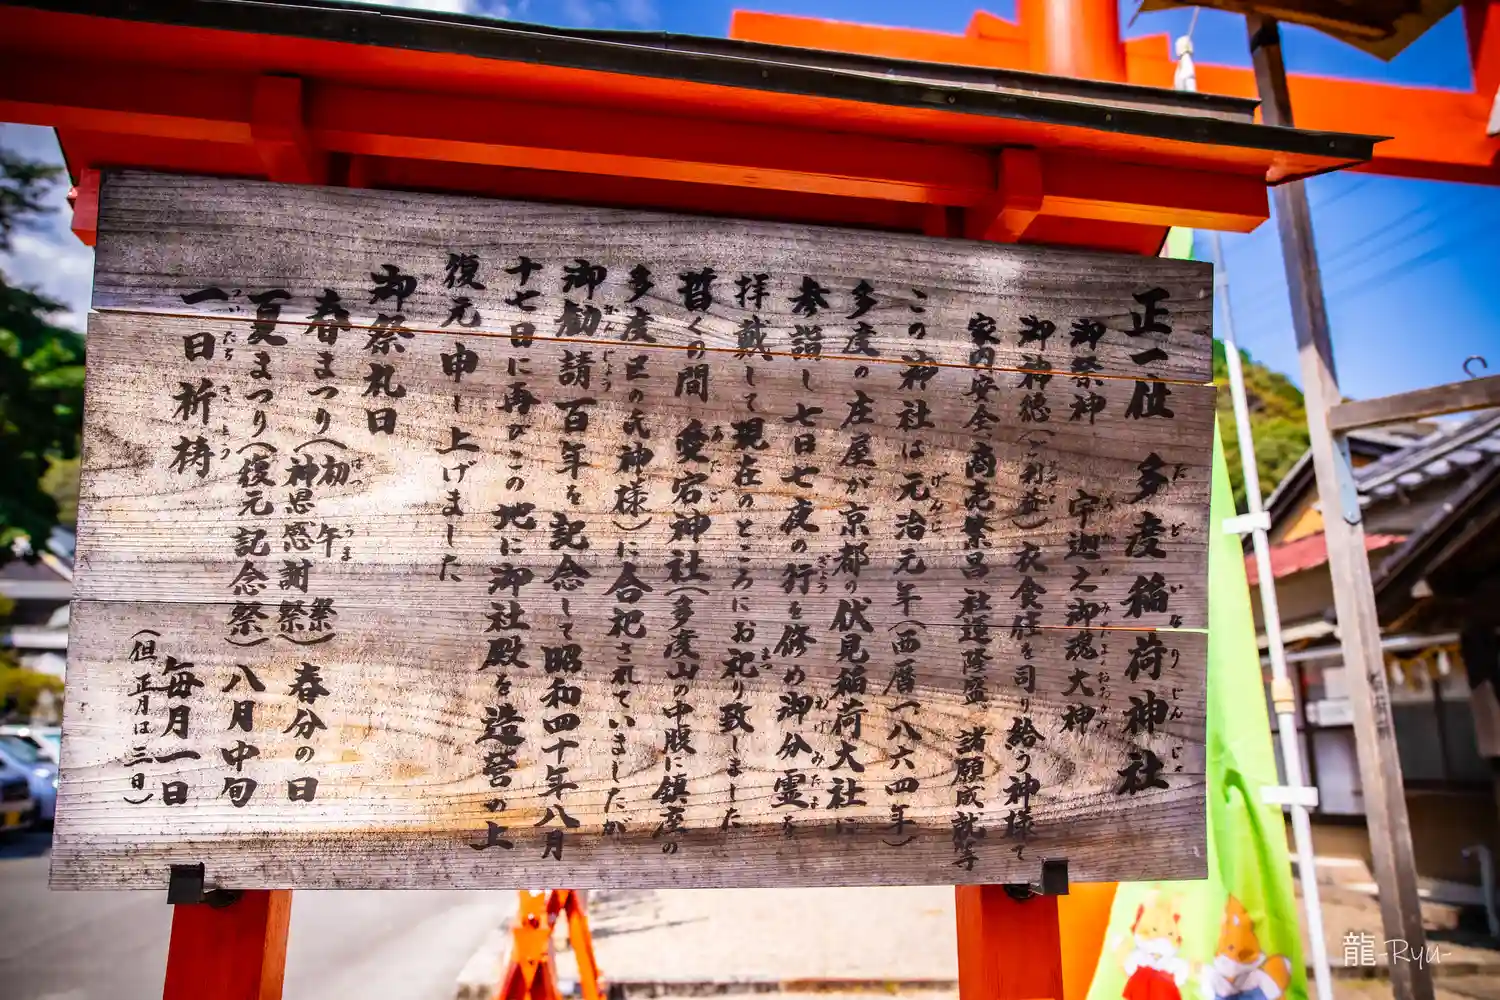 正一位 多度稲荷神社
だ ど いなり じんじゃ
御祭神 宇迦之御魂大神
うかのみたまのおおかみ
御神徳(ご利益)衣食住を司り給う神様で
家内安全 商売繁昌 社運隆盛 諸願成就等
この神社は元治元年(西暦一八六四年)
げんじ
多度の庄屋が京都の伏見稲荷大社に
参詣し七日七夜の行を修め御分霊を
ぎょう
わけみたま
拝戴して現在のところにお祀り致しました
まつ
暫くの間 愛宕神社(多度山の中腹に鎮座の
あたご
多度区の氏神様)に合祀されていましたが
御勧請百年を記念して昭和四十年八月
かんじょう
十七日に再びこの地に御社殿を造営の上
復元申し上げました
御祭礼日
春まつり(初午祭) 春分の日
はつ うま
(神恩感謝祭)
夏まつり(復元記念祭) 八月中旬
一日祈祷 毎月一日
ついたち きとう
(但 正月は三日)
龍-Ryu-